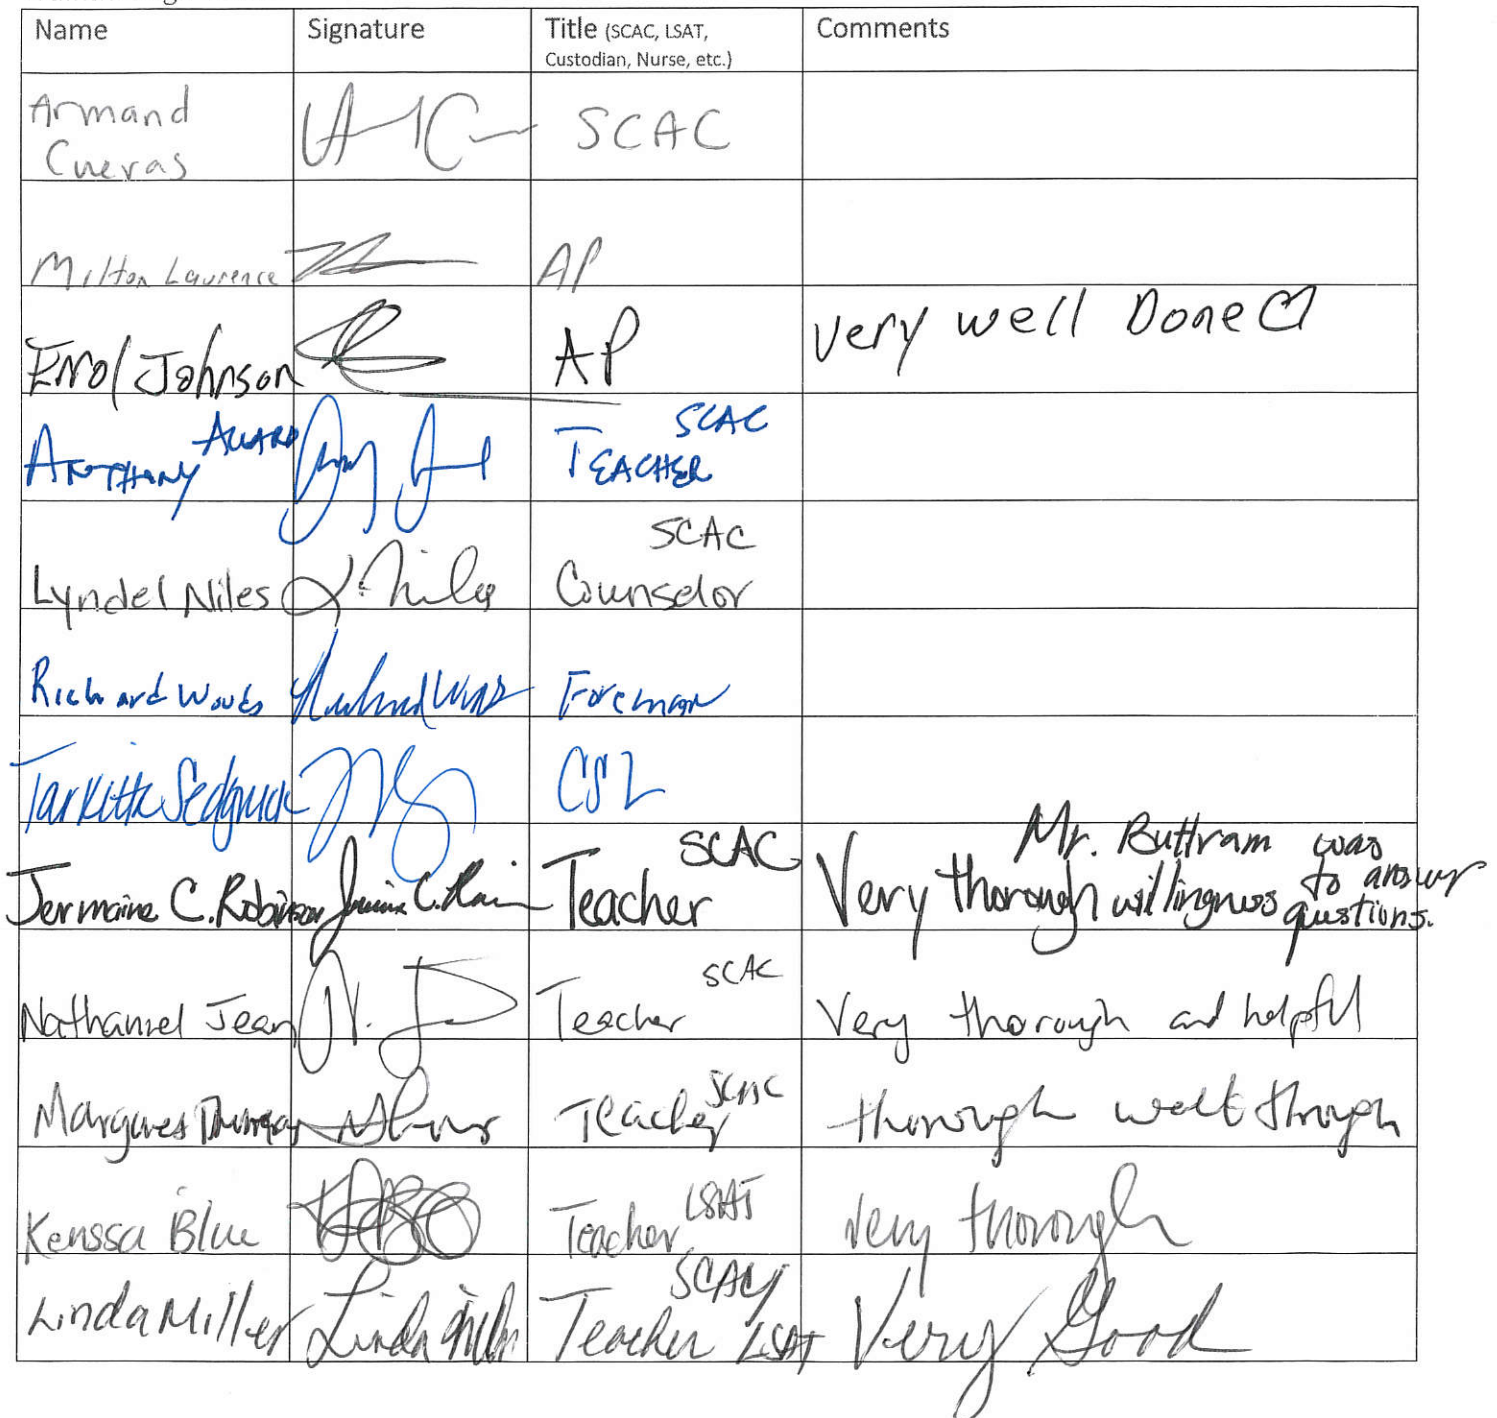 Name Signature Title (SCAC, LSAT, Comments
Custodian, Nurse, etc.)
Armand
Cuevas SCAC
Milton Laurence AP
Errol Johnson AP Very well Done
Anthony Allard SCAC
Teacher
SCAC
Lyndel Niles L. Niles Counselor
Richard Woods Richard Woods Foreman
Sedgwick CSL
Mr. Buttram was
Jermaine C. Robinson SCAC Teacher Very thorough willingness to answer
questions.
Nathaniel Jean N. J SCAC Teacher Very thorough and helpful
SCAC Teacher thorough walk through
Blue Teacher LSAT Very thorough
Linda Miller Linda Miller Teacher SCAC/ LSAT Very Good